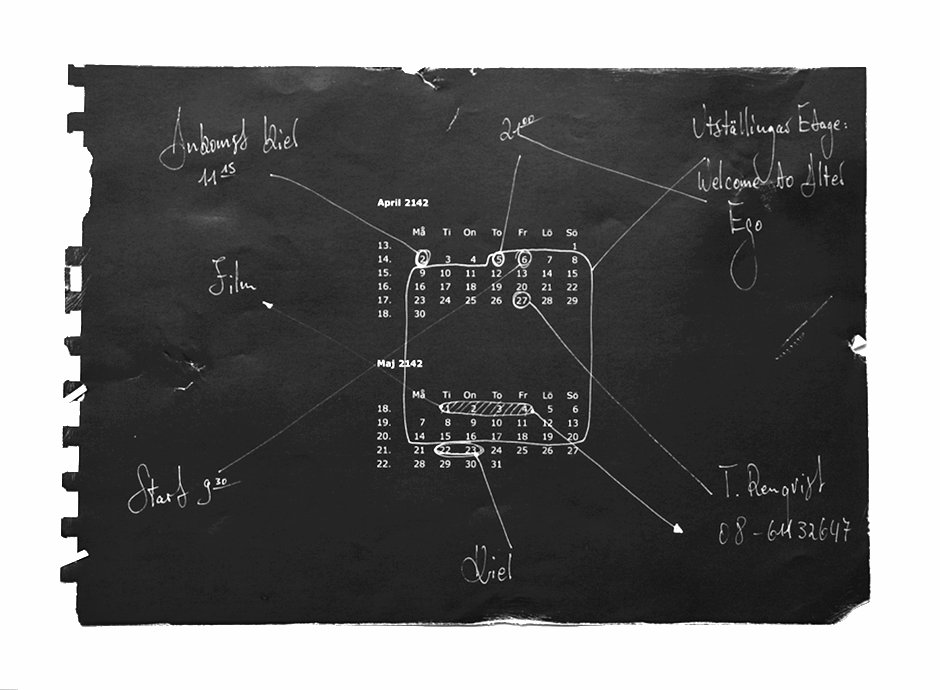 Ankomst Kiel
11 15
21 00
Utställingar Etage:
Welcome to Alter
Ego
Film
April 2142
Må Ti On To Fr Lö Sö
13. 1
14. 2 3 4 5 6 7 8
15. 9 10 11 12 13 14 15
16. 16 17 18 19 20 21 22
17. 23 24 25 26 27 28 29
18. 30
Maj 2142
Må Ti On To Fr Lö Sö
18. 1 2 3 4 5 6
19. 7 8 9 10 11 12 13
20. 14 15 16 17 18 19 20
21. 21 22 23 24 25 26 27
22. 28 29 30 31
Start 9 30
T. Renqvist
08-61132647
Kiel